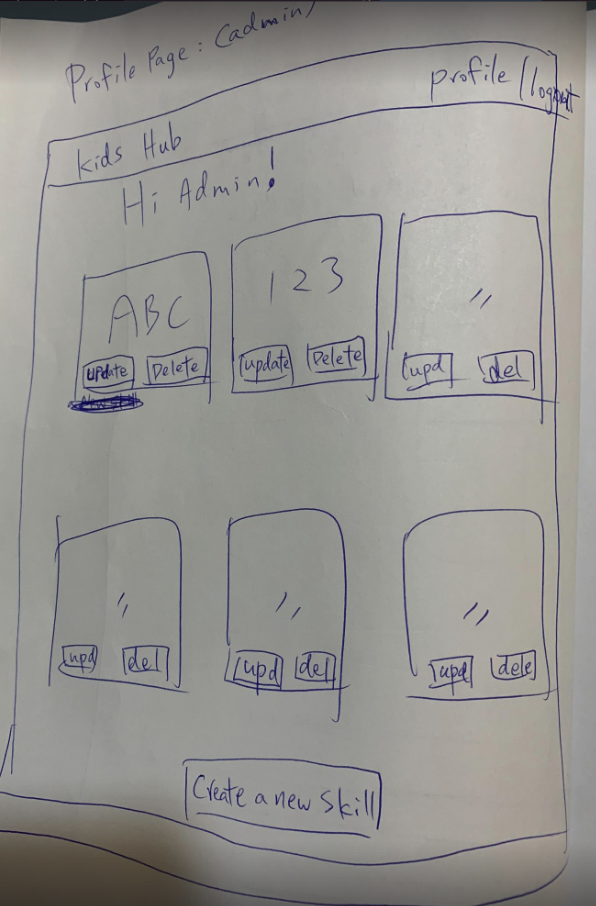 Profile Page: (admin)
profile / logout
kids Hub
Hi Admin!
ABC
update Delete
123
update Delete
"
upd del
"
upd del
"
upd del
"
upd dele
Create a new skill